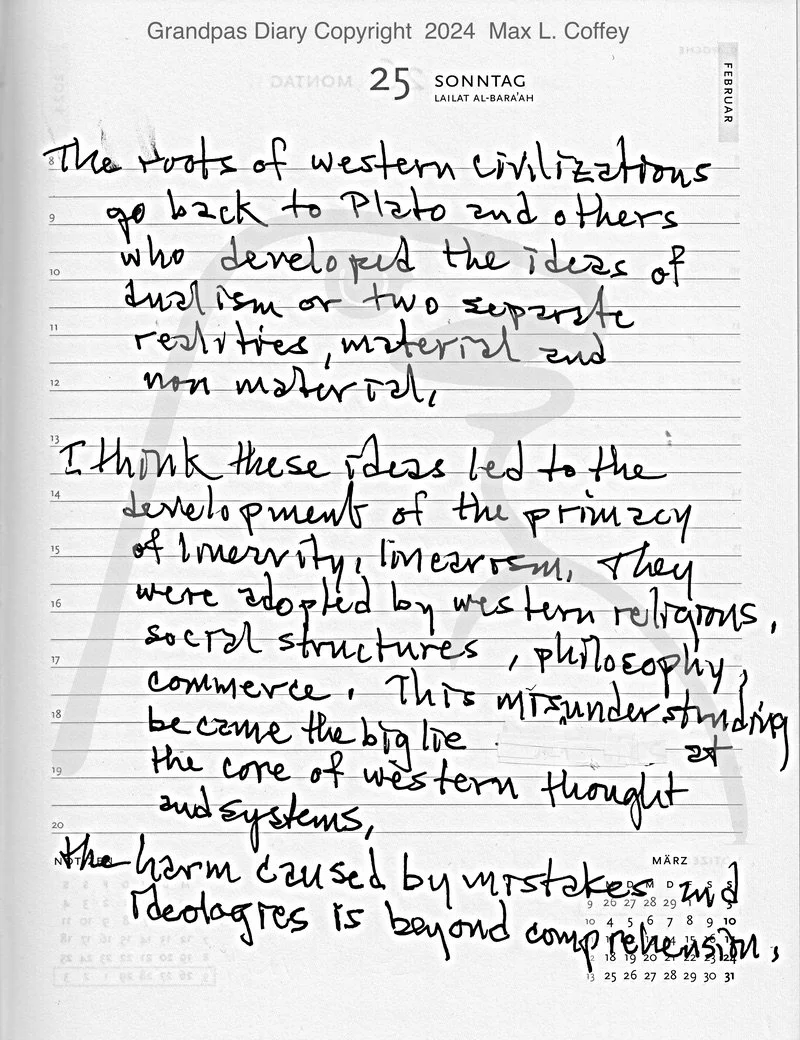 Grandpas Diary Copyright 2024 Max L. Coffey
25 SONNTAG
LAILAT AL-BARA'AH
FEBRUAR
8 The roots of western civilizations
9 go back to Plato and others
10 who developed the ideas of
dualism or two separate
11 realities, material and
12 non material.
13 I think these ideas led to the
14 development of the primacy
15 of linearity, linearism. They
16 were adopted by western religions,
social structures, philosophy,
17 commerce. This misunderstanding
18 became the big lie at
19 the core of western thought
and systems.
20
NOTIZEN
MÄRZ
the harm caused by mistakes and
ideologies is beyond comprehension.
9 26 27 28 29
10 4 5 6 7 8 9 10
18 19 20 21 22 23 24
13 25 26 27 28 29 30 31